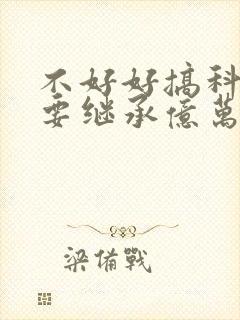 不好好搞科
要继承億萬
梁備戰